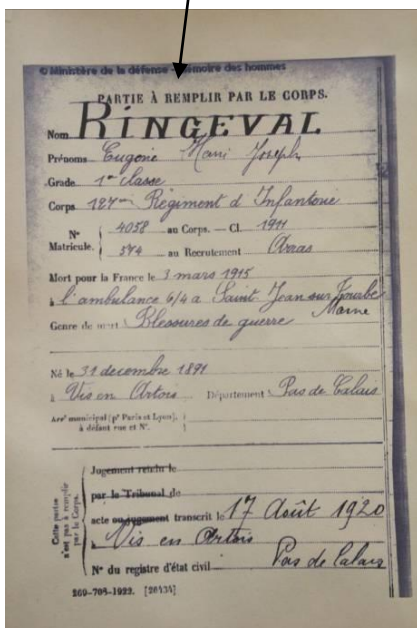 © Ministère de la défense - Mémoire des hommes
PARTIE À REMPLIR PAR LE CORPS.
Nom RINGEVAL
Prénoms Eugène Marie Joseph
Grade 1re classe
Corps 127me Régiment d'Infanterie
N° Matricule. 4058 au Corps. — Cl. 1911
574 au Recrutement Arras
Mort pour la France le 3 mars 1915
à l'ambulance 6/4 a Saint Jean sur Tourbe
Marne
Genre de mort Blessures de guerre
Né le 31 décembre 1891
à Vis en Artois Département Pas de Calais
Arrt municipal (pr Paris et Lyon),
à défaut rue et N°.
Cette partie n'est pas à remplir par le Corps.
Jugement rendu le
par le Tribunal de
acte ou jugement transcrit le 17 Août 1920
à Vis en Artois
Pas de Calais
N° du registre d'état civil
269-708-1922. [26434]